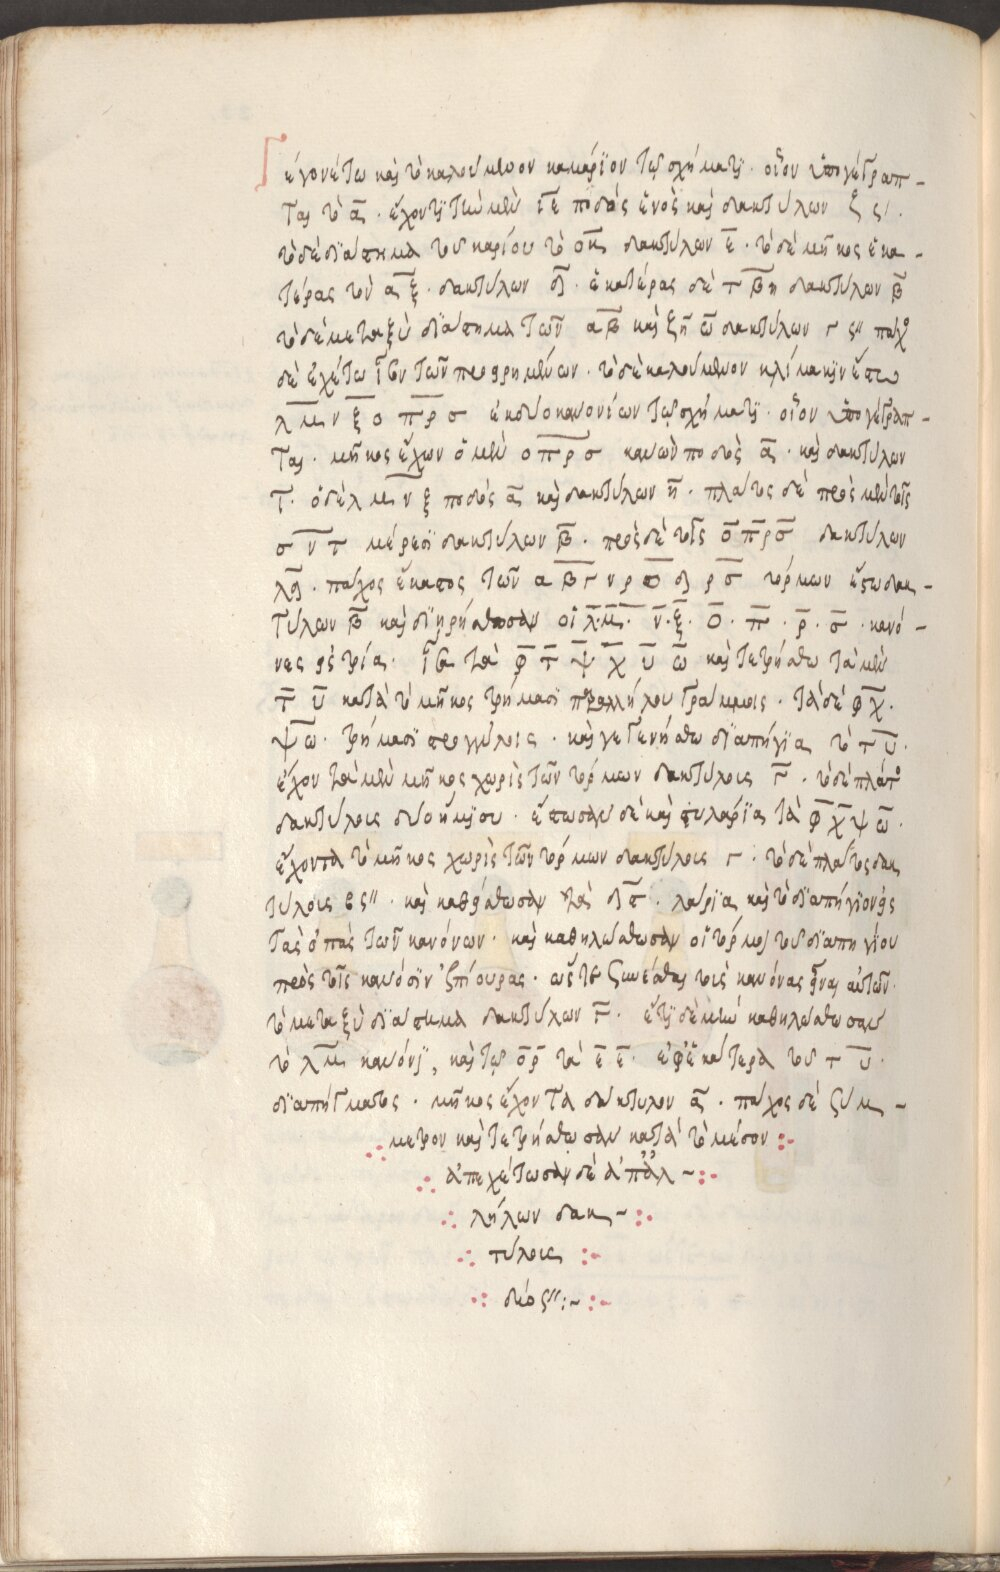 Γεγονέτω καὶ τὸ καλούμενον καμάριον τῷ σχήματι· οἷον ὑπογέγραπ-
ται τὸ α̅· ἔχον τὴν μὲν ι̅ε̅ ποδὸς ἑνὸς καὶ δακτύλων ξ ς′·
τὸ δὲ διάστημα τοῦ καρίου τὸ ο̅κ̅ δακτύλων ε̅· τὸ δὲ μῆκος ἑκα-
τέρας τῶν α̅ξ̅· δακτύλων λ̅· ἑκατέρας δὲ τ̅β̅η δακτύλων β̅
τὸ δὲ μεταξὺ διάστημα τῶν α̅β̅ καὶ ξη̅ ω̅ δακτύλων γ ς″ πάχος
δὲ ἐχέτω ἴσον τῶν προειρημένων· τὸ δὲ καλούμενον κλιμακὴν ἔστω
λ̅μ̅ν̅ξ̅ο̅ π̅ρ̅σ ἐκ δύο κανονίων τῷ σχήματι· οἷον ὑπογέγραπ-
ται· μῆκος ἔχων ὁ μὲν ο̅π̅ρ̅σ κανὼν ποδὸς α̅· καὶ δακτύλων
γ̅· ὁ δὲ λ̅μ̅ν̅ξ ποδὸς α̅ καὶ δακτύλων η̅· πλάτος δὲ πρὸς μὲν τοῖς
σ̅ν̅τ̅ μέρεσι δακτύλων β̅· πρὸς δὲ τοῖς ο̅π̅ρ̅σ̅ δακτύλων
πάχος ἕκαστος τῶν τόρμων ἔξω δακ-
τύλων β̅ καὶ διῃρήσθωσαν οἱ λ̅·μ̅· ν̅·ξ̅· ο̅· π̅· ρ̅· σ̅· κανό-
νες εἰς τρία· ἴσα τὰ φ̅ τ̅ ψ̅ χ̅ υ̅ ω̅ καὶ τετρήσθω τὰ μὲν
τ̅ υ̅ κατὰ τὸ μῆκος τρήμασι παραλλήλου γράμμοις· τὰ δὲ φ̅χ̅·
ψ̅ω̅· τρήμασι στρογγύλοις· καὶ γεγενήσθω διαπήγια τὸ τ̅υ̅·
ἔχοντα μὲν μῆκος χωρὶς τῶν τόρμων δακτύλοις γ̅· τὸ δὲ πλάτος
δακτύλοις δύο ἥμισυ· ἔστωσαν δὲ καὶ στυλάρια τὰ φ̅χ̅ψ̅ω̅·
ἔχοντα τὸ μῆκος χωρὶς τῶν τόρμων δακτύλοις γ· τὸ δὲ πλάτος δακ
τύλοις ες″· καὶ καθείσθωσαν τὰ στυ· λάρια καὶ τὸ διαπήγιον εἰς
τὰς ὀπὰς τῶν κανόνων· καὶ καθηλώσθωσαν οἱ τόρμοι τοῦ διαπηγίου
πρὸς τοῖς κανόσιν ἐξ πίουρας· ὥστε συνέσθαι τοὺς κανόνας εἶναι αὐτῶν·
τὸ μεταξὺ διάστημα δακτύλων γ̅· ἔτι δὲ μὴν καθηλώσθωσαν
τὸ λ̅μ̅ κανόνι, καὶ τῷ ο̅ρ̅ τὰ ε̅ ε̅· ἐφ' ἑκάτερα τοῦ τ̅ υ̅·
διαπήγματος· μῆκος ἔχοντα δάκτυλον α̅· πάχος δὲ σύμ-
μετρον καὶ τετρήσθωσαν κατὰ τὸ μέσον :-
ἀπεχέτωσαν δὲ ἀπ' ἀλ-:-
λήλων δακ-:-
τύλοις :-
δύο ς″:~:-